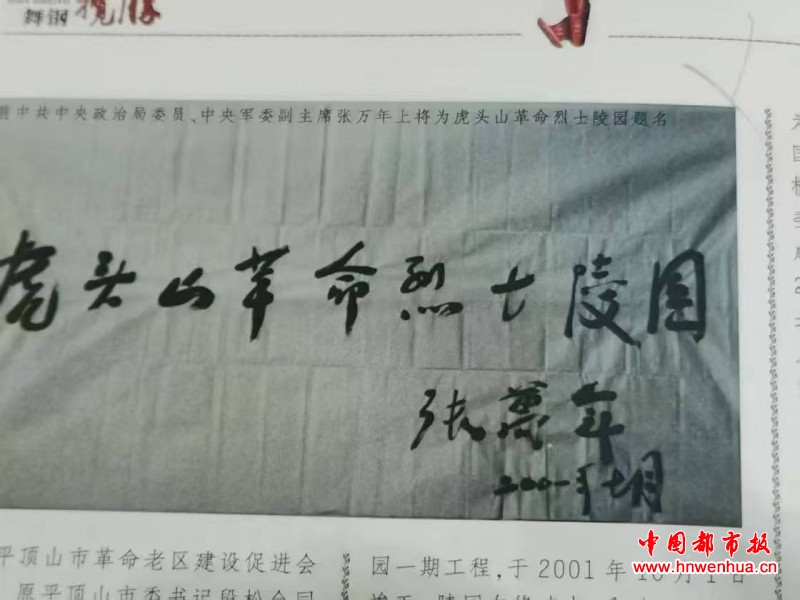 舞钢揽胜
前中共中央政治局委员、中央军委副主席张万年上将为虎头山革命烈士陵园题名
虎头山革命烈士陵园
张萬年
2001年七月
平顶山市革命老区建设促进会
原平顶山市委书记段松会同
园一期工程，于2001年10月1日
中国都市报
www.hnwenhua.com